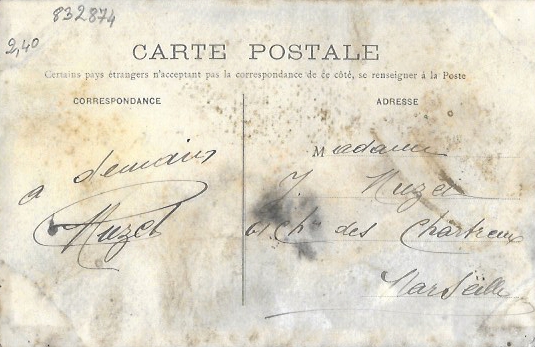 832874
2,40
CARTE POSTALE
Certains pays étrangers n'acceptant pas la correspondance de ce côté, se renseigner à la Poste
CORRESPONDANCE
a demain
Huzet
ADRESSE
Madame
J. Huzet
61 Ch. des Chartreux
Marseille